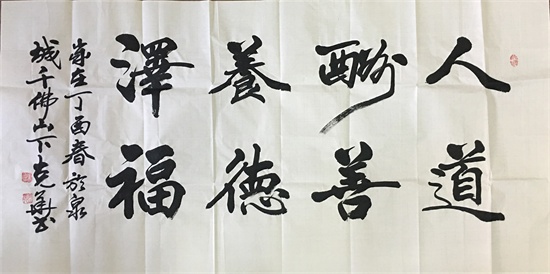 人道
酬善
養德
澤福
歲在丁酉春於泉
城千佛山下克華书